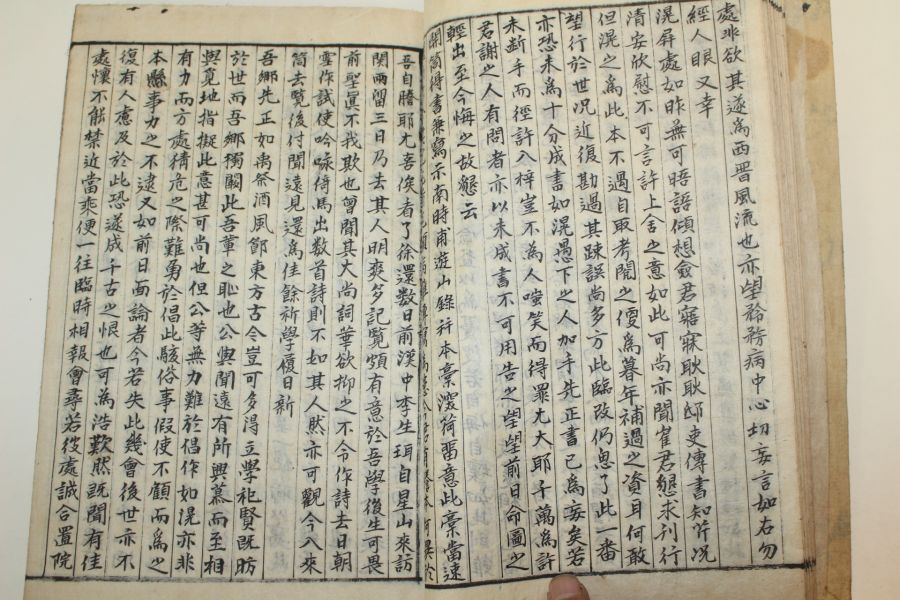 處非欲其遂爲西晋風流也亦望矜務病中心切妄言如右勿
經人眼又幸
滉屛處如昨無可晤語傾想僉君寤寐耿耿邸吏傳書知芹况
淸安欣慰不可言許上舍之意如此可尚亦聞崔君懇求刊行
但滉之爲此本不過自取考閱之便爲暮年補過之資耳何敢
望行於世况近復勘過其踈誤尚多方此臨改仍思了此一番
亦恐未爲十分成書如滉愚下之人加手先正書已爲妄矣若
未斷手而徑許入梓豈不爲人嗤笑而得罪尤大耶千萬爲許
君謝之人有問者亦以未成書不可用告之望望前日命圖之
輕出至今悔之故懇云
開筒得書兼寫示南時甫遊山錄幷本藁深荷留意此藁當速
吾自謄耶尤喜俟者了徐還數日前漢中李生珥自星山來訪
関雨留三日乃去其人明爽多記覽頗有意於吾學後生可畏
前聖眞不我欺也曾聞其大尚詞華欲抑之不令作詩去日朝
雪作試使吟咏倚馬出数首詩則不如其人然亦可觀今八來
筒去覽後付聞遠見還爲佳餘祈學履日新
吾鄕先正如禹祭酒風節東方古今豈可多得立學祀賢旣昉
於世而吾鄕獨闕此吾軰之恥也公與聞遠有所興慕而至相
與覓地指擬此意甚可尚也但公等無力難於倡作如滉亦非
有力而方處猜危之際難勇於倡此駭俗事假使不顧而爲之
本縣事力之不逮又如前日面論者今若失此幾會後世亦不
復有人慮及於此恐遂成千古之恨也可爲浩歎然旣聞有佳
處懷不能禁近當乘便一往臨時相報會尋若彼處誠合置院